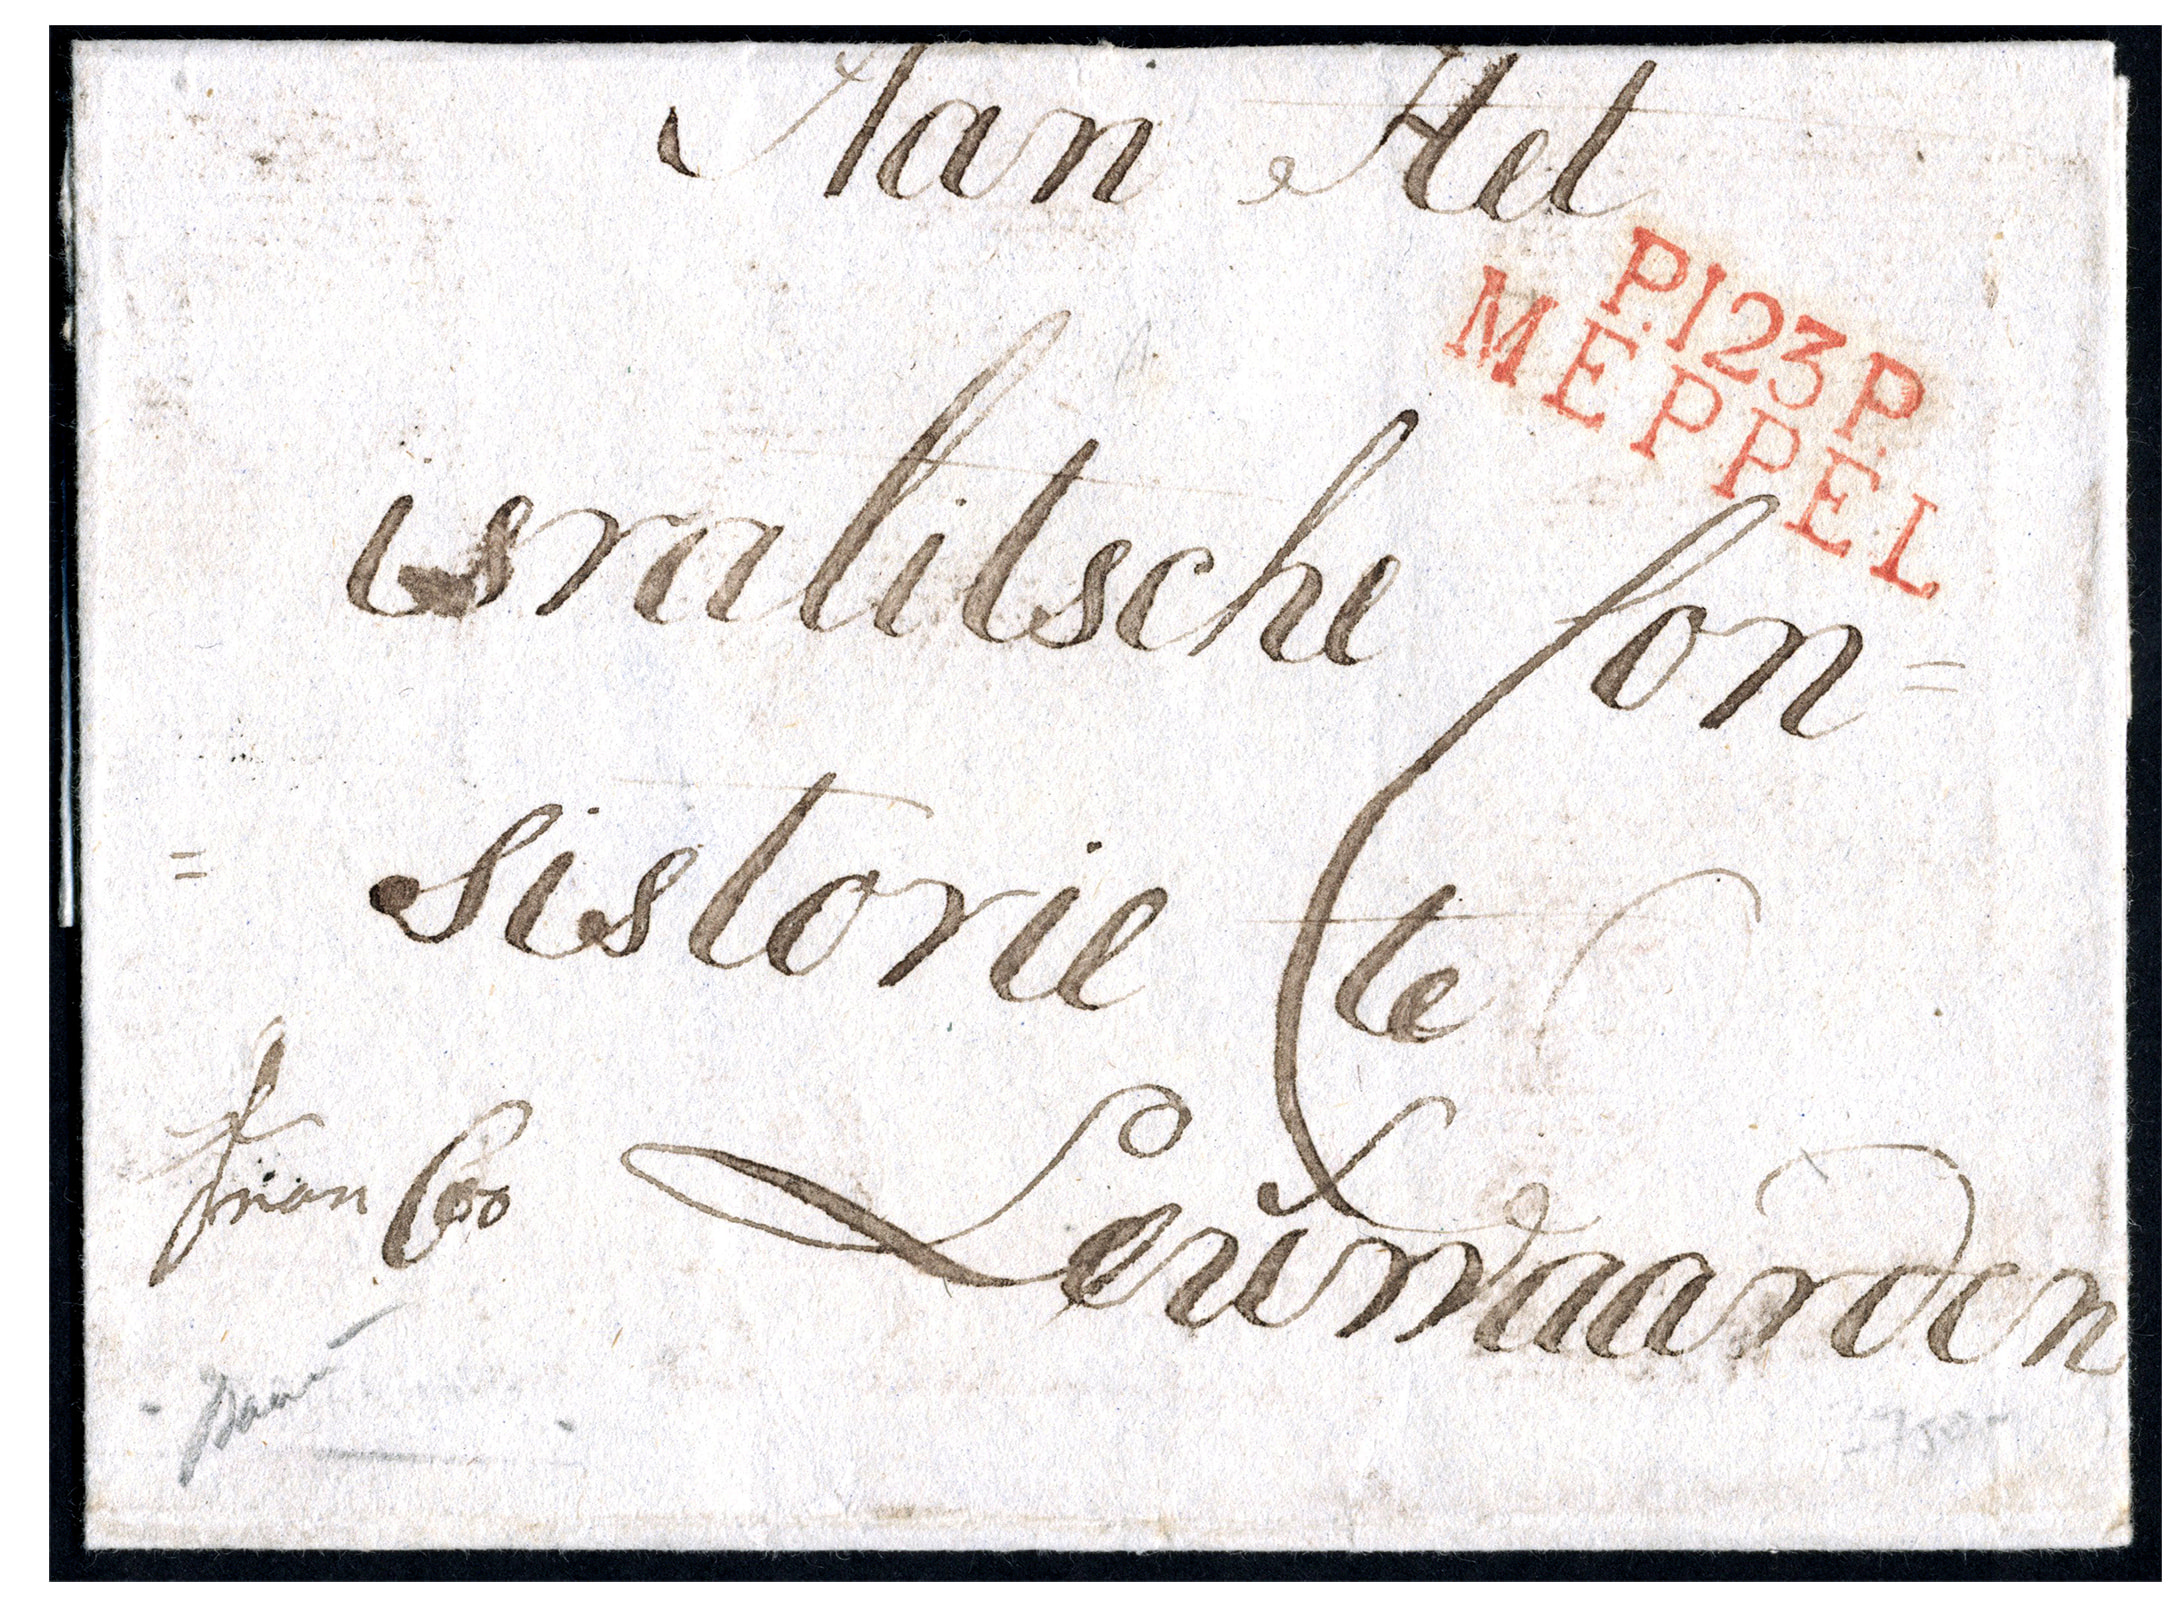 Aan Het
P.123P.
MEPPEL
isralitsche Con=
=sistorie te
Leuwaarden
franCoo